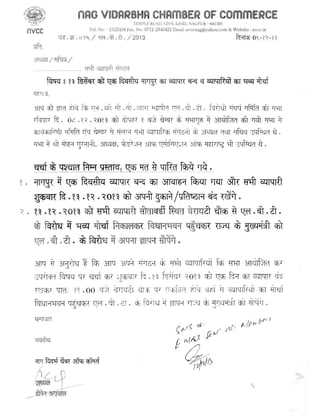 NAG VIDARBHA CHAMBER OF COMMERCE
NVCC
TEMPLE ROAD, CIVIL LINES, NAGPUR - 440 001
Tel. No. : 2523454 Fax. No. 0712-2541621 Email nvccnag@yahoo.com & Website : nvcc.in
/ 2013 दिनांक ०९-१२-१३
प्रति,
अध्यक्ष / सचिव /
सभी व्यापारी संगठन
विषय : १३ डिसेंबर को एक दिवसीय नागपुर का व्यापार बन्द व व्यापारियों का भव्य मोर्चा
महोदय,
आप को ज्ञात होवे कि एन.व्ही.सी.सी. द्वारा स्थापित एल.बी.टी. विरोधी संघर्ष समिति की सभा
रविवार दि. ०८.१२.२०१३ को दोपहर १ बजे चेम्बर के सभागृह में आयोजित की गयी सभा में
कार्यकारिणी समिति एवं चेम्बर से संलग्न सभी व्यापारिक संगठनों के अध्यक्ष तथा सचिव उपस्थित थे.
सभा में श्री मोहन गुरनानी, अध्यक्ष, फेडरेशन आफ एसोसिएशन आफ महाराष्ट्र भी उपस्थित थे.
चर्चा के पश्चात निम्न प्रस्ताव, एक मत से पारित किये गये.
१. नागपुर में एक दिवसीय व्यापार बन्द का आवाहन किया गया और सभी व्यापारी
शुक्रवार दि.१३.१२.२०१३ को अपनी दुकाने/प्रतिष्ठान बंद रखेंगे.
२. १३.१२.२०१३ को सभी व्यापारी सीताबर्डी स्थित वेरायटी चौक से एल.बी.टी.
के विरोध में भव्य मोर्चा निकालकर विधानभवन पहुंचकर राज्य के मुख्यमंत्री को
एल.बी.टी. के विरोध में अपना ज्ञापन सौपेंगे.
आप से अनुरोध हैं कि आप अपने संगठन के सभी व्यापारियों कि सभा आयोजित कर
उपरोक्त विषय पर चर्चा कर शुक्रवार दि.१३ डिसेंबर २०१३ को एक दिन का व्यापार बंद
रखकर प्रातः ११.०० बजे वेरायटी चौक पर एकत्रित होवे वहां से व्यापारियों का मोर्चा
विधानभवन पहुंचकर एल.बी.टी. के विरोध में ज्ञापन राज्य के मुख्यमंत्री को सौपेंगे.
धन्यवाद
भवदीय
नाग विदर्भ चेंबर ऑफ कॉमर्स
अध्यक्ष
दीपेन अग्रवाल